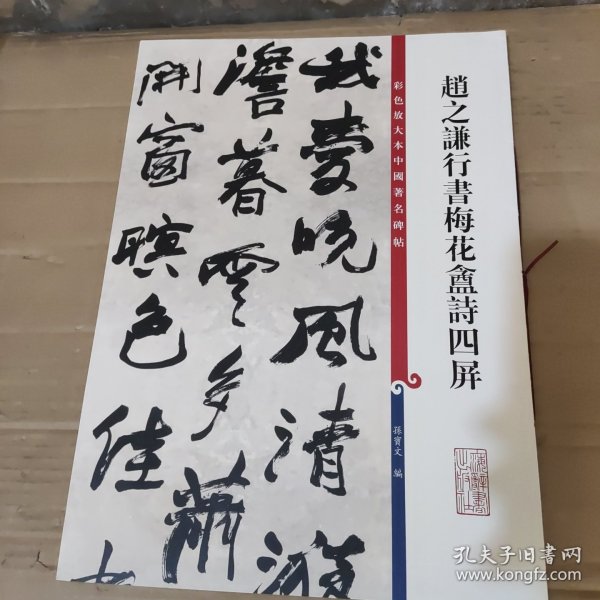 趙之謙行書梅花盦詩四屏
彩色放大本中國著名碑帖
孫寶文 編
我愛晚風清
澹暮雲多蕭
開窗暝色佳
孔夫子旧书网
www.kongfz.com